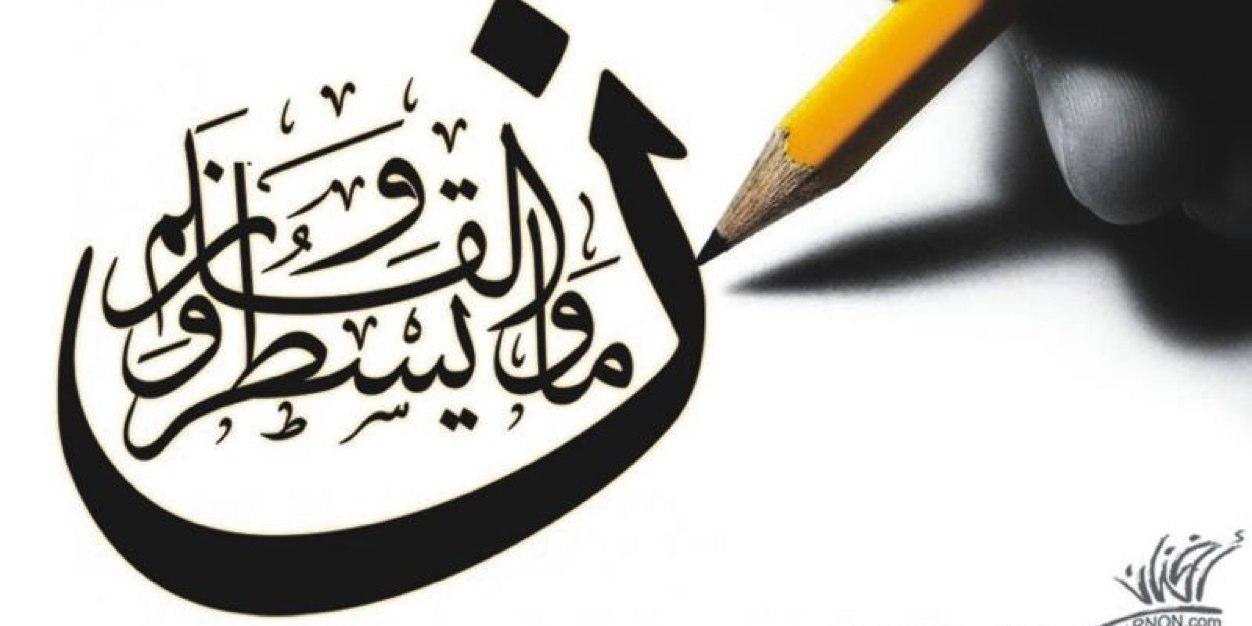 ن والقلم وما يسطرون
RNON.com